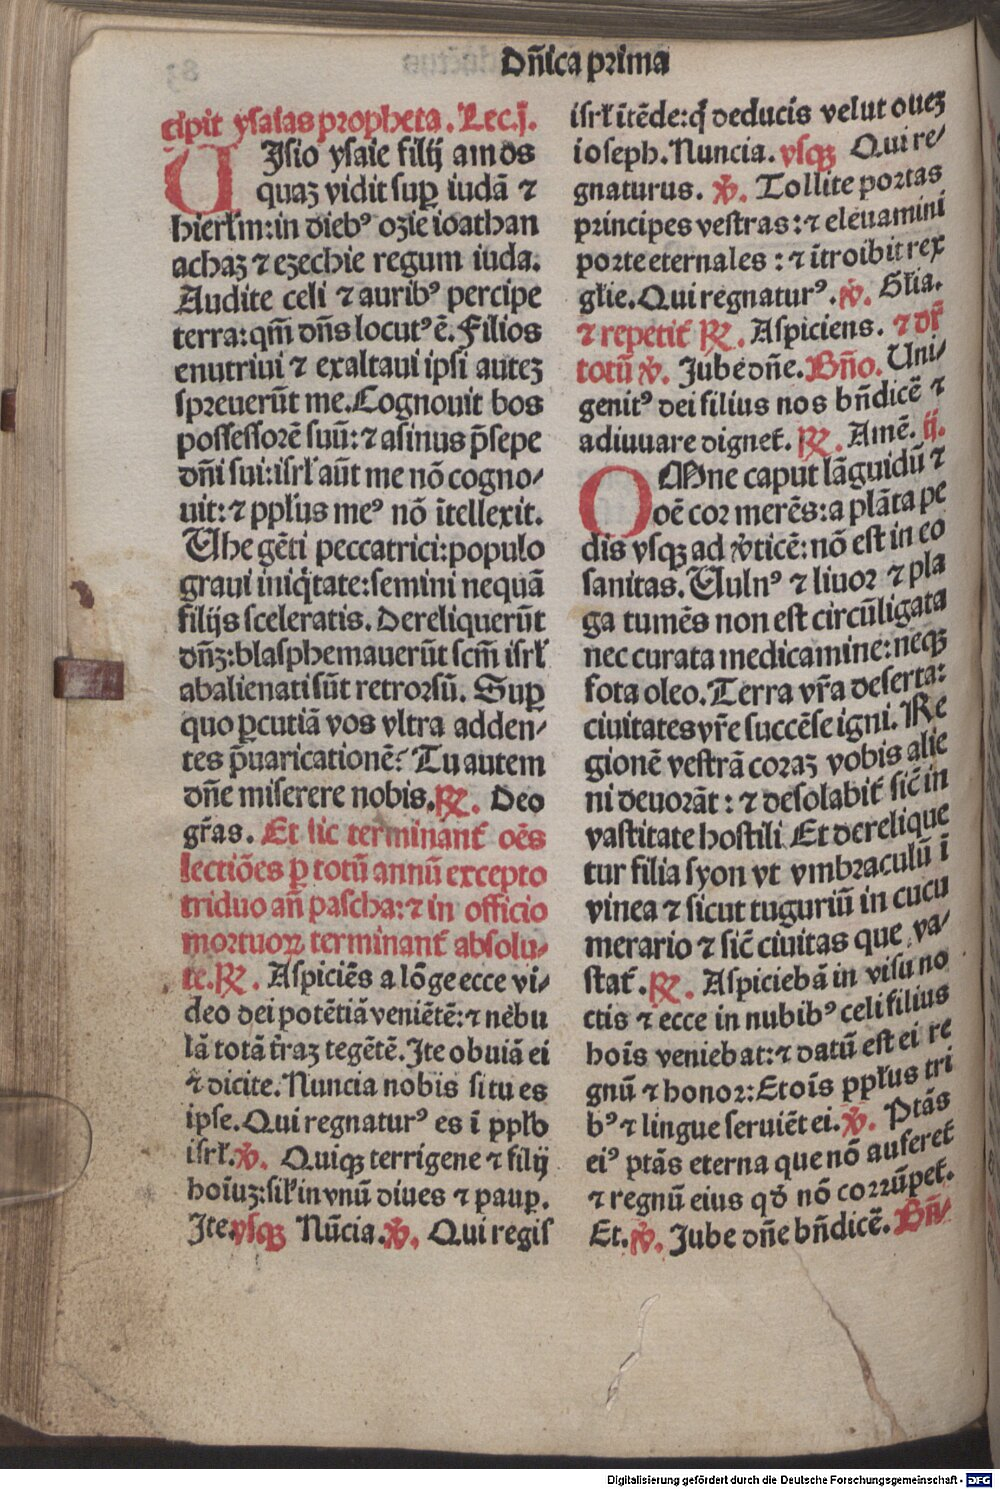 Dñica prima
cipit ysaias propheta. Lec.j.
UIsio ysaie filij amos
quaꝫ vidit suꝑ iudã ⁊
hierłm:in dieb⁹ ozie ioathan
achaz ⁊ ezechie regum iuda.
Audite celi ⁊ aurib⁹ percipe
terra:qm̃ dñs locut⁹ ẽ. Filios
enutriui ⁊ exaltaui ipsi auteꝫ
spreuerũt me. Cognouit bos
possessorẽ suũ:⁊ asinus p̃sepe
dñi sui:isrł aũt me nõ cogno⸗
uit:⁊ ppłus me⁹ nõ ĩtellexit.
Uhe gẽti peccatrici:populo
graui iniq̃tate:semini nequã
filijs sceleratis. Dereliquerũt
dñꝫ:blasphemauerũt scm̃ isrł
abalienati sũt retrorsũ. Suꝑ
quo ꝑcutiã vos vltra adden⸗
tes p̃uaricationẽ? Tu autem
dñe miserere nobis. ℟. Deo
gr̃as. Et sic terminant̃ oẽs
lectiões ꝑ totũ annũ excepto
triduo añ pascha:⁊ in officio
mortuoꝝ terminant̃ absolu⸗
te. ℟. Aspiciẽs a lõge ecce vi⸗
deo dei potẽtiã veniẽtẽ:⁊ nebu
lã totã t̃raꝫ tegẽtẽ. Ite obuiã ei
⁊ dicite. Nuncia nobis si tu es
ipse. Qui regnatur⁹ es ĩ ppło
isrł. ℣. Quiqꝫ terrigene ⁊ filij
hoĩuꝫ:sił in vnũ diues ⁊ pauꝑ.
Ite. vsqꝫ Nũcia. ℣. Qui regis
isrł ĩtẽde:q̃ deducis velut oueꝫ
ioseph. Nuncia. vsqꝫ Qui re⸗
gnaturus. ℣. Tollite portas
principes vestras:⁊ eleuamini
porte eternales:⁊ ĩtroibit rex
głie. Qui regnatur⁹. ℣. Głia.
⁊ repetit̃ ℟. Aspiciens. ⁊ dr̃
totũ ℣. Jube dñe. Bño. Uni⸗
genit⁹ dei filius nos bñdicẽ ⁊
adiuuare dignet̃. ℟. Amẽ. ij.
OMne caput lãguidũ ⁊
oẽ cor merẽs:a plãta pe
dis vsqꝫ ad ṽticẽ:nõ est in eo
sanitas. Uuln⁹ ⁊ liuor ⁊ pla
ga tumẽs non est circũligata
nec curata medicamine:neqꝫ
fota oleo. Terra vr̃a deserta:
ciuitates vr̃e succẽse igni. Re
gionẽ vestrã coraꝫ vobis alie
ni deuorãt:⁊ desolabit̃ sic̃ in
vastitate hostili. Et derelique
tur filia syon vt vmbraculũ ĩ
vinea ⁊ sicut tuguriũ in cucu
merario ⁊ sic̃ ciuitas que va⸗
stat̃. ℟. Aspiciebã in visu no
ctis ⁊ ecce in nubib⁹ celi filius
hoĩs veniebat:⁊ datũ est ei re
gnũ ⁊ honor:Et oĩs ppłus tri
b⁹ ⁊ lingue seruiẽt ei. ℣. Ptãs
ei⁹ ptãs eterna que nõ auferet̃
⁊ regnũ eius qđ nõ corrũpet̃.
Et. ℣. Jube dñe bñdicẽ. Bñ⸗
Digitalisierung gefördert durch die Deutsche Forschungsgemeinschaft - DFG